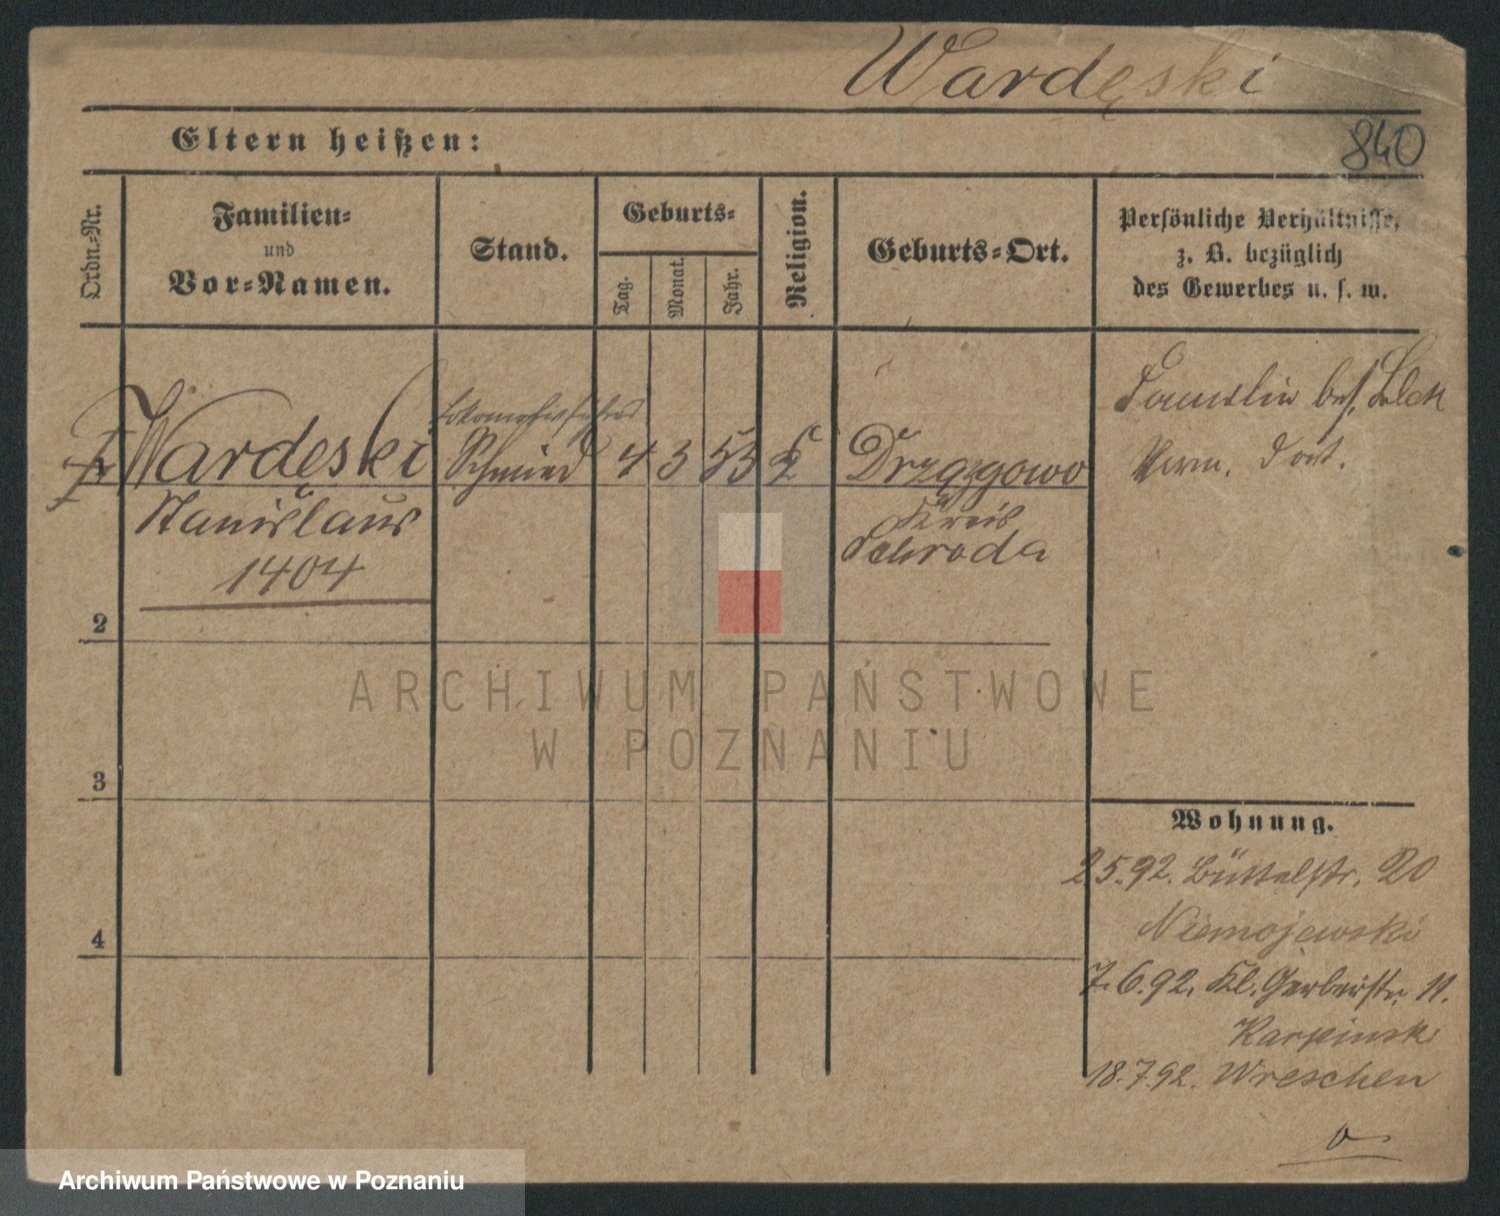 Wardęski
840
Eltern heißen:
Ordn.-Nr.
Familien-
und
Vor-Namen.
Stand.
Geburts-
Tag.
Monat.
Jahr.
Religion.
Geburts-Ort.
Persönliche Verhältnisse,
z. B. bezüglich
des Gewerbes u. s. w.
Wardęski
Stanislaus
1404
Lokomotivführer
Schmied
4 3 53
Drzązgowo
Kreis
Schroda
Familie bes.
Verm. dort.
2
3
4
Wohnung.
2.5.92. Büttelstr. 20
Niemojewski
7.6.92. Kl. Gerberstr. 11.
Karpinski
18.7.92. Wreschen
ARCHIWUM PAŃSTWOWE
W POZNANIU
Archiwum Państwowe w Poznaniu